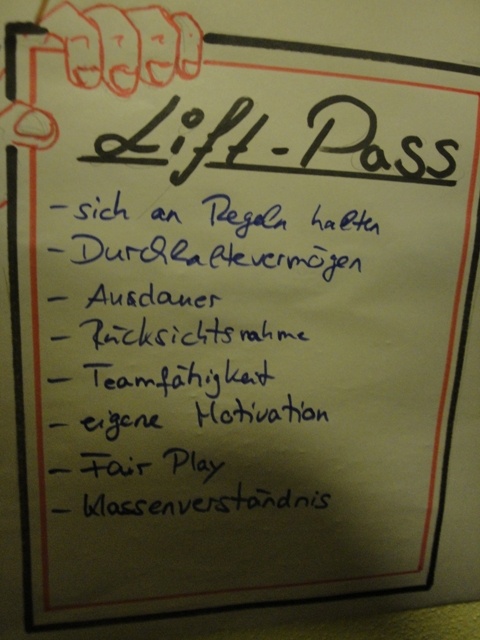 Lift-Pass
- sich an Regeln halten
- Durchhaltevermögen
- Ausdauer
- Rücksichtsnahme
- Teamfähigkeit
- eigene Motivation
- Fair Play
- Klassenverständnis